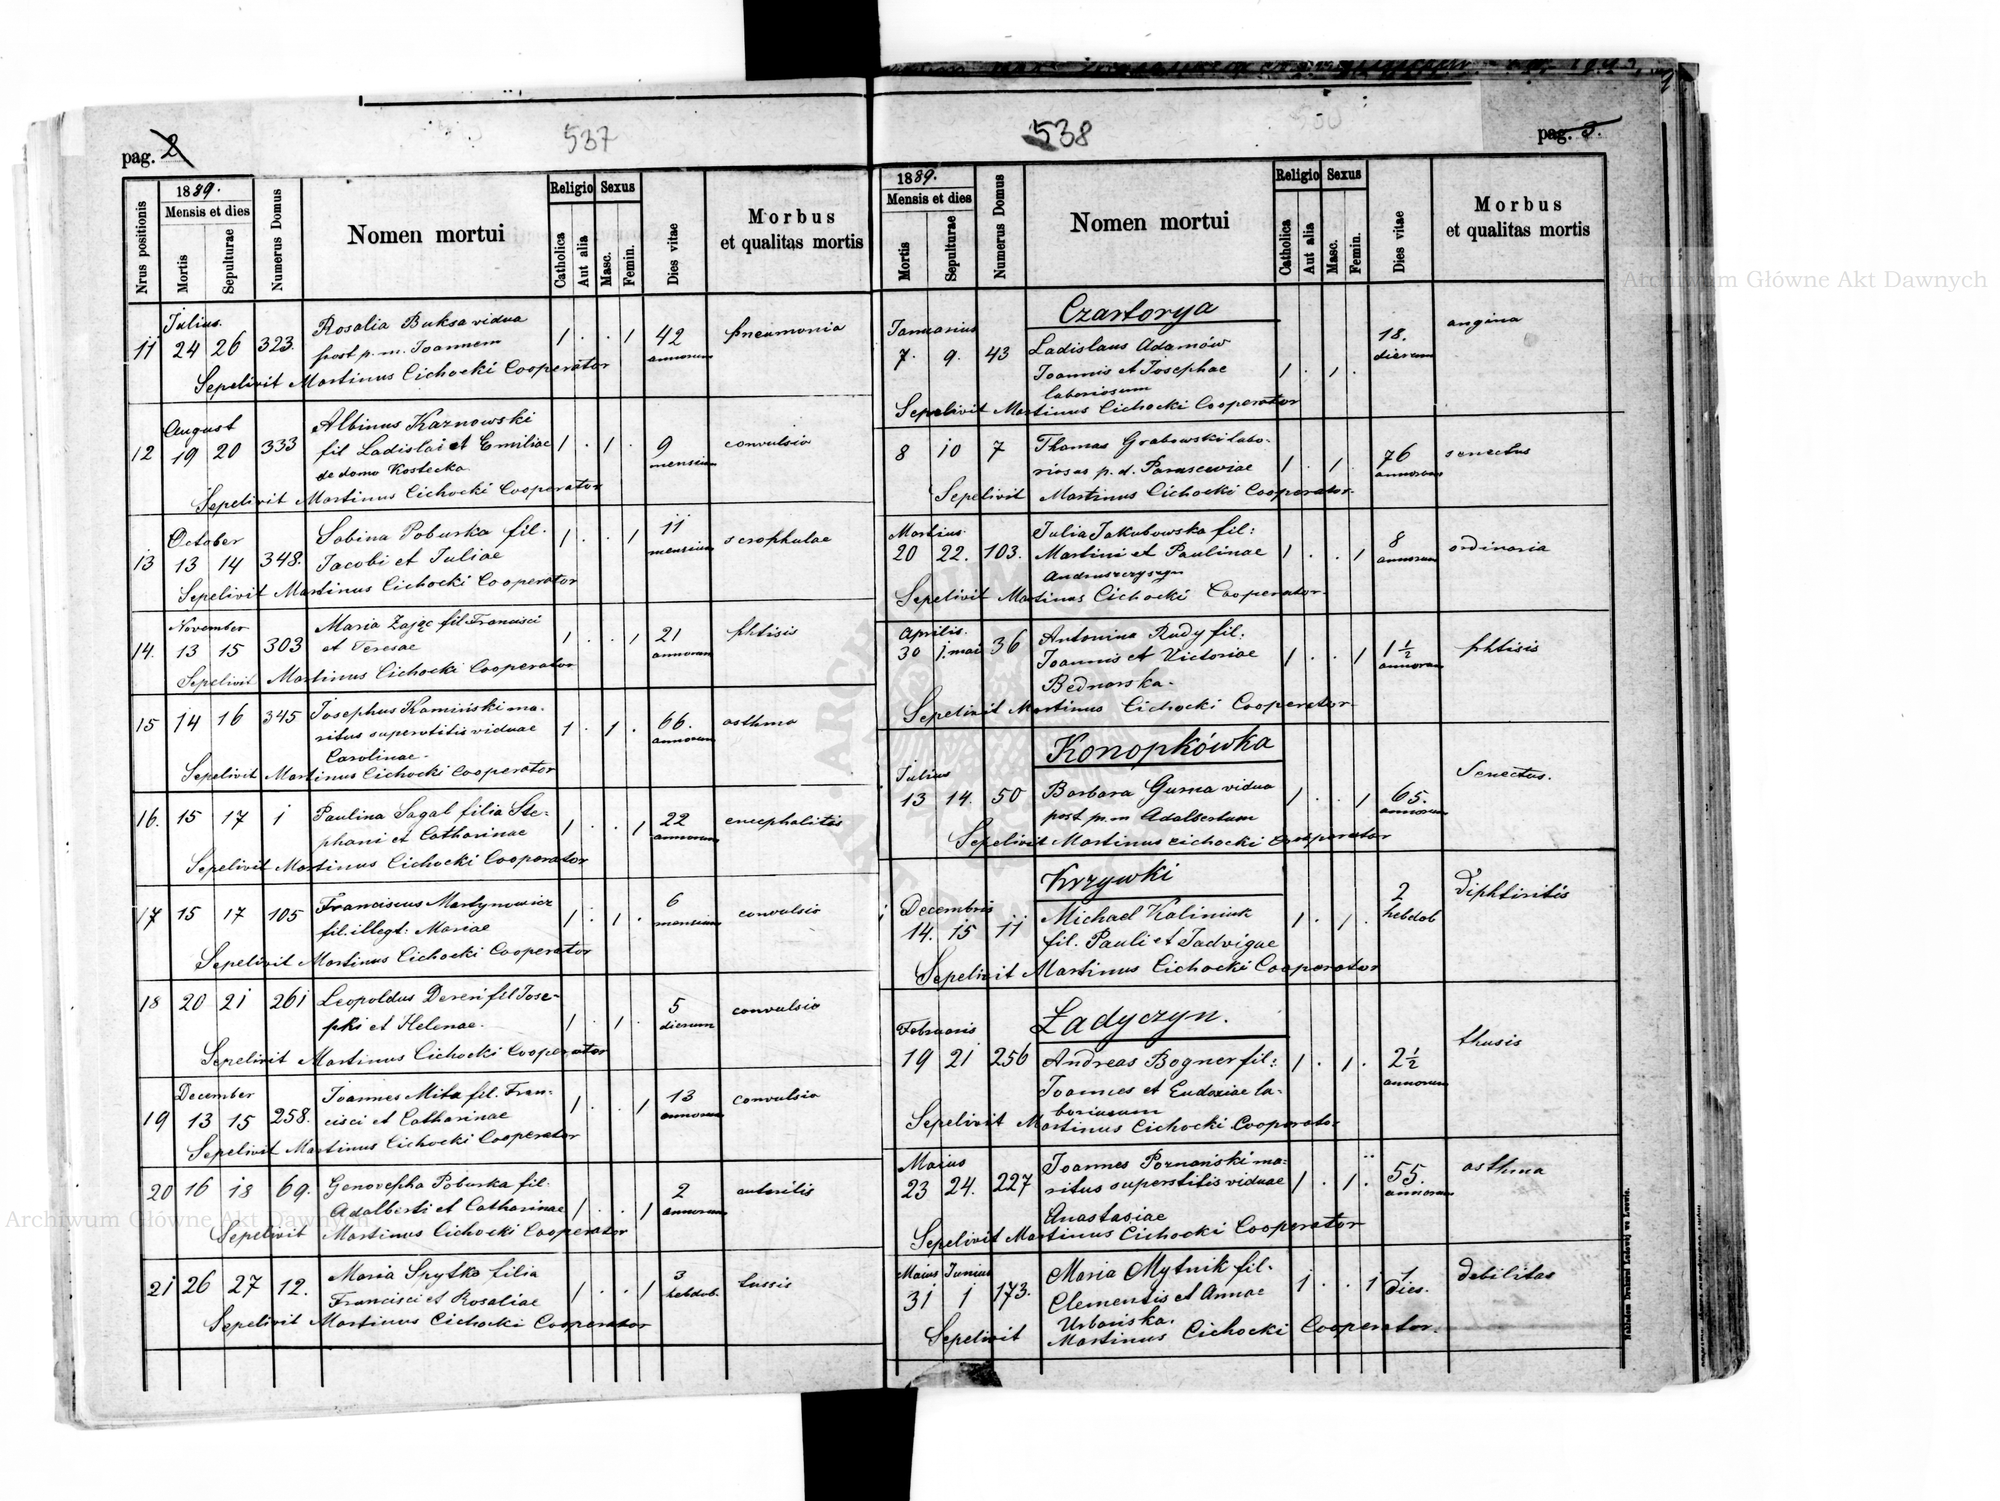 537
pag. 2
1889.
Nrus positionis
Mensis et dies
Mortis
Sepulturae
Numerus Domus
Nomen mortui
Religio
Catholica
Aut alia
Sexus
Masc.
Femin.
Dies vitae
Morbus
et qualitas mortis
Julius.
11 24 26 323. Rosalia Buksa vidua 1 . . 1 42 pneumonia
post p. m. Joannem annorum
Sepelivit Martinus Cichocki Cooperator
August
12 19 20 333 Albinus Kaznowski 1 . 1 . 9 convulsio
fil Ladislai et Emiliae mensium
de domo Kostecka
Sepelivit Martinus Cichocki Cooperator
October
13 13 14 348. Sabina Poburka fil. 1 . . 1 11 scrophulae
Jacobi et Juliae mensium
Sepelivit Martinus Cichocki Cooperator
November
14. 13 15 303 Maria Zając fil Francisci 1 . . 1 21 phtisis
et Teresae annorum
Sepelivit Martinus Cichocki Cooperator
15 14 16 345 Josephus Kamiński ma- 1 . 1 . 66. asthma
ritus superstitis viduae annorum
Carolinae.
Sepelivit Martinus Cichocki Cooperator
16. 15 17 1 Paulina Sagal filia Ste- 1 . . 1 22 encephalitis
phani et Catharinae annorum
Sepelivit Martinus Cichocki Cooperator
17 15 17 105 Franciscus Martynowicz 1 . 1 . 6 convulsio
fil. illegt: Mariae mensium
Sepelivit Martinus Cichocki Cooperator
18 20 21 261 Leopoldus Dereń fil Jose- 1 . 1 . 5 convulsio
phi et Helenae. dierum
Sepelivit Martinus Cichocki Cooperator
December
19 13 15 258. Joannes Mita fil. Fran- 1 . . 1 13 convulsio
cisci et Catharinae annorum
Sepelivit Martinus Cichocki Cooperator
20 16 18 69. Genovepha Poburka fil. 1 . . 1 2
Adalberti et Catharinae annorum
Sepelivit Martinus Cichocki Cooperator
21 26 27 12. Maria Szytko filia 1 . . 1 3 tussis
Francisci et Rosaliae hebdob.
Sepelivit Martinus Cichocki Cooperator
538
pag. 3.
1889.
Mensis et dies
Mortis
Sepulturae
Numerus Domus
Nomen mortui
Religio
Catholica
Aut alia
Sexus
Masc.
Femin.
Dies vitae
Morbus
et qualitas mortis
Czartorya
Januarius
7. 9. 43 Ladislaus Adamów 1 . 1 . 18. angina
Joannis et Josephae dierum
laboriosum
Sepelivit Martinus Cichocki Cooperator
8 10 7 Thomas Grabowski labo- 1 . 1 . 76 senectus
riosus p. d. Parasceviae annorum
Sepelivit Martinus Cichocki Cooperator
Martius
20 22. 103. Julia Jakubowska fil: 1 . . 1 8 ordinaria
Martini et Paulinae annorum
Andruszczyszyn
Sepelivit Martinus Cichocki Cooperator
Aprilis.
30 1. mai 36 Antonina Rudy fil. 1 . . 1 1 1/2 phtisis
Joannis et Victoriae annorum
Bednarska.
Sepelivit Martinus Cichocki Cooperator
Konopkówka
Julius
13 14. 50 Barbara Gurna vidua 1 . . 1 65. Senectus.
post p. m Adalbertum annorum
Sepelivit Martinus Cichocki Cooperator
Krzywki
Decembris
14. 15 11 Michael Kaliniuk 1 . 1 . 2 hebdob diphtiritis
fil. Pauli et Jadvigae
Sepelivit Martinus Cichocki Cooperator
Ładyczyn.
Februaris
19 21 256 Andreas Bogner fil: 1 . 1 . 2 1/2 thusis
Joannes et Eudoxiae la- annorum
boriosum
Sepelivit Martinus Cichocki Cooperator
Maius
23 24. 227 Joannes Poznański ma- 1 . 1 . 55. asthma
ritus superstitis viduae annorum
Anastasiae
Sepelivit Martinus Cichocki Cooperator
Maius Junius
31 1 173. Maria Mytnik fil. 1 . . 1 1 dies. debilitas
Clementis et Annae
Urbańska.
Sepelivit Martinus Cichocki Cooperator.
Nakładem Drukarni Ludowej we Lwowie.
Archiwum Główne Akt Dawnych
Archiwum Główne Akt Dawnych